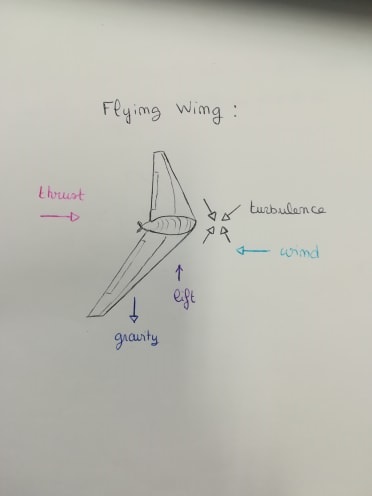 Flying Wing :
thrust
turbulence
wind
lift
gravity